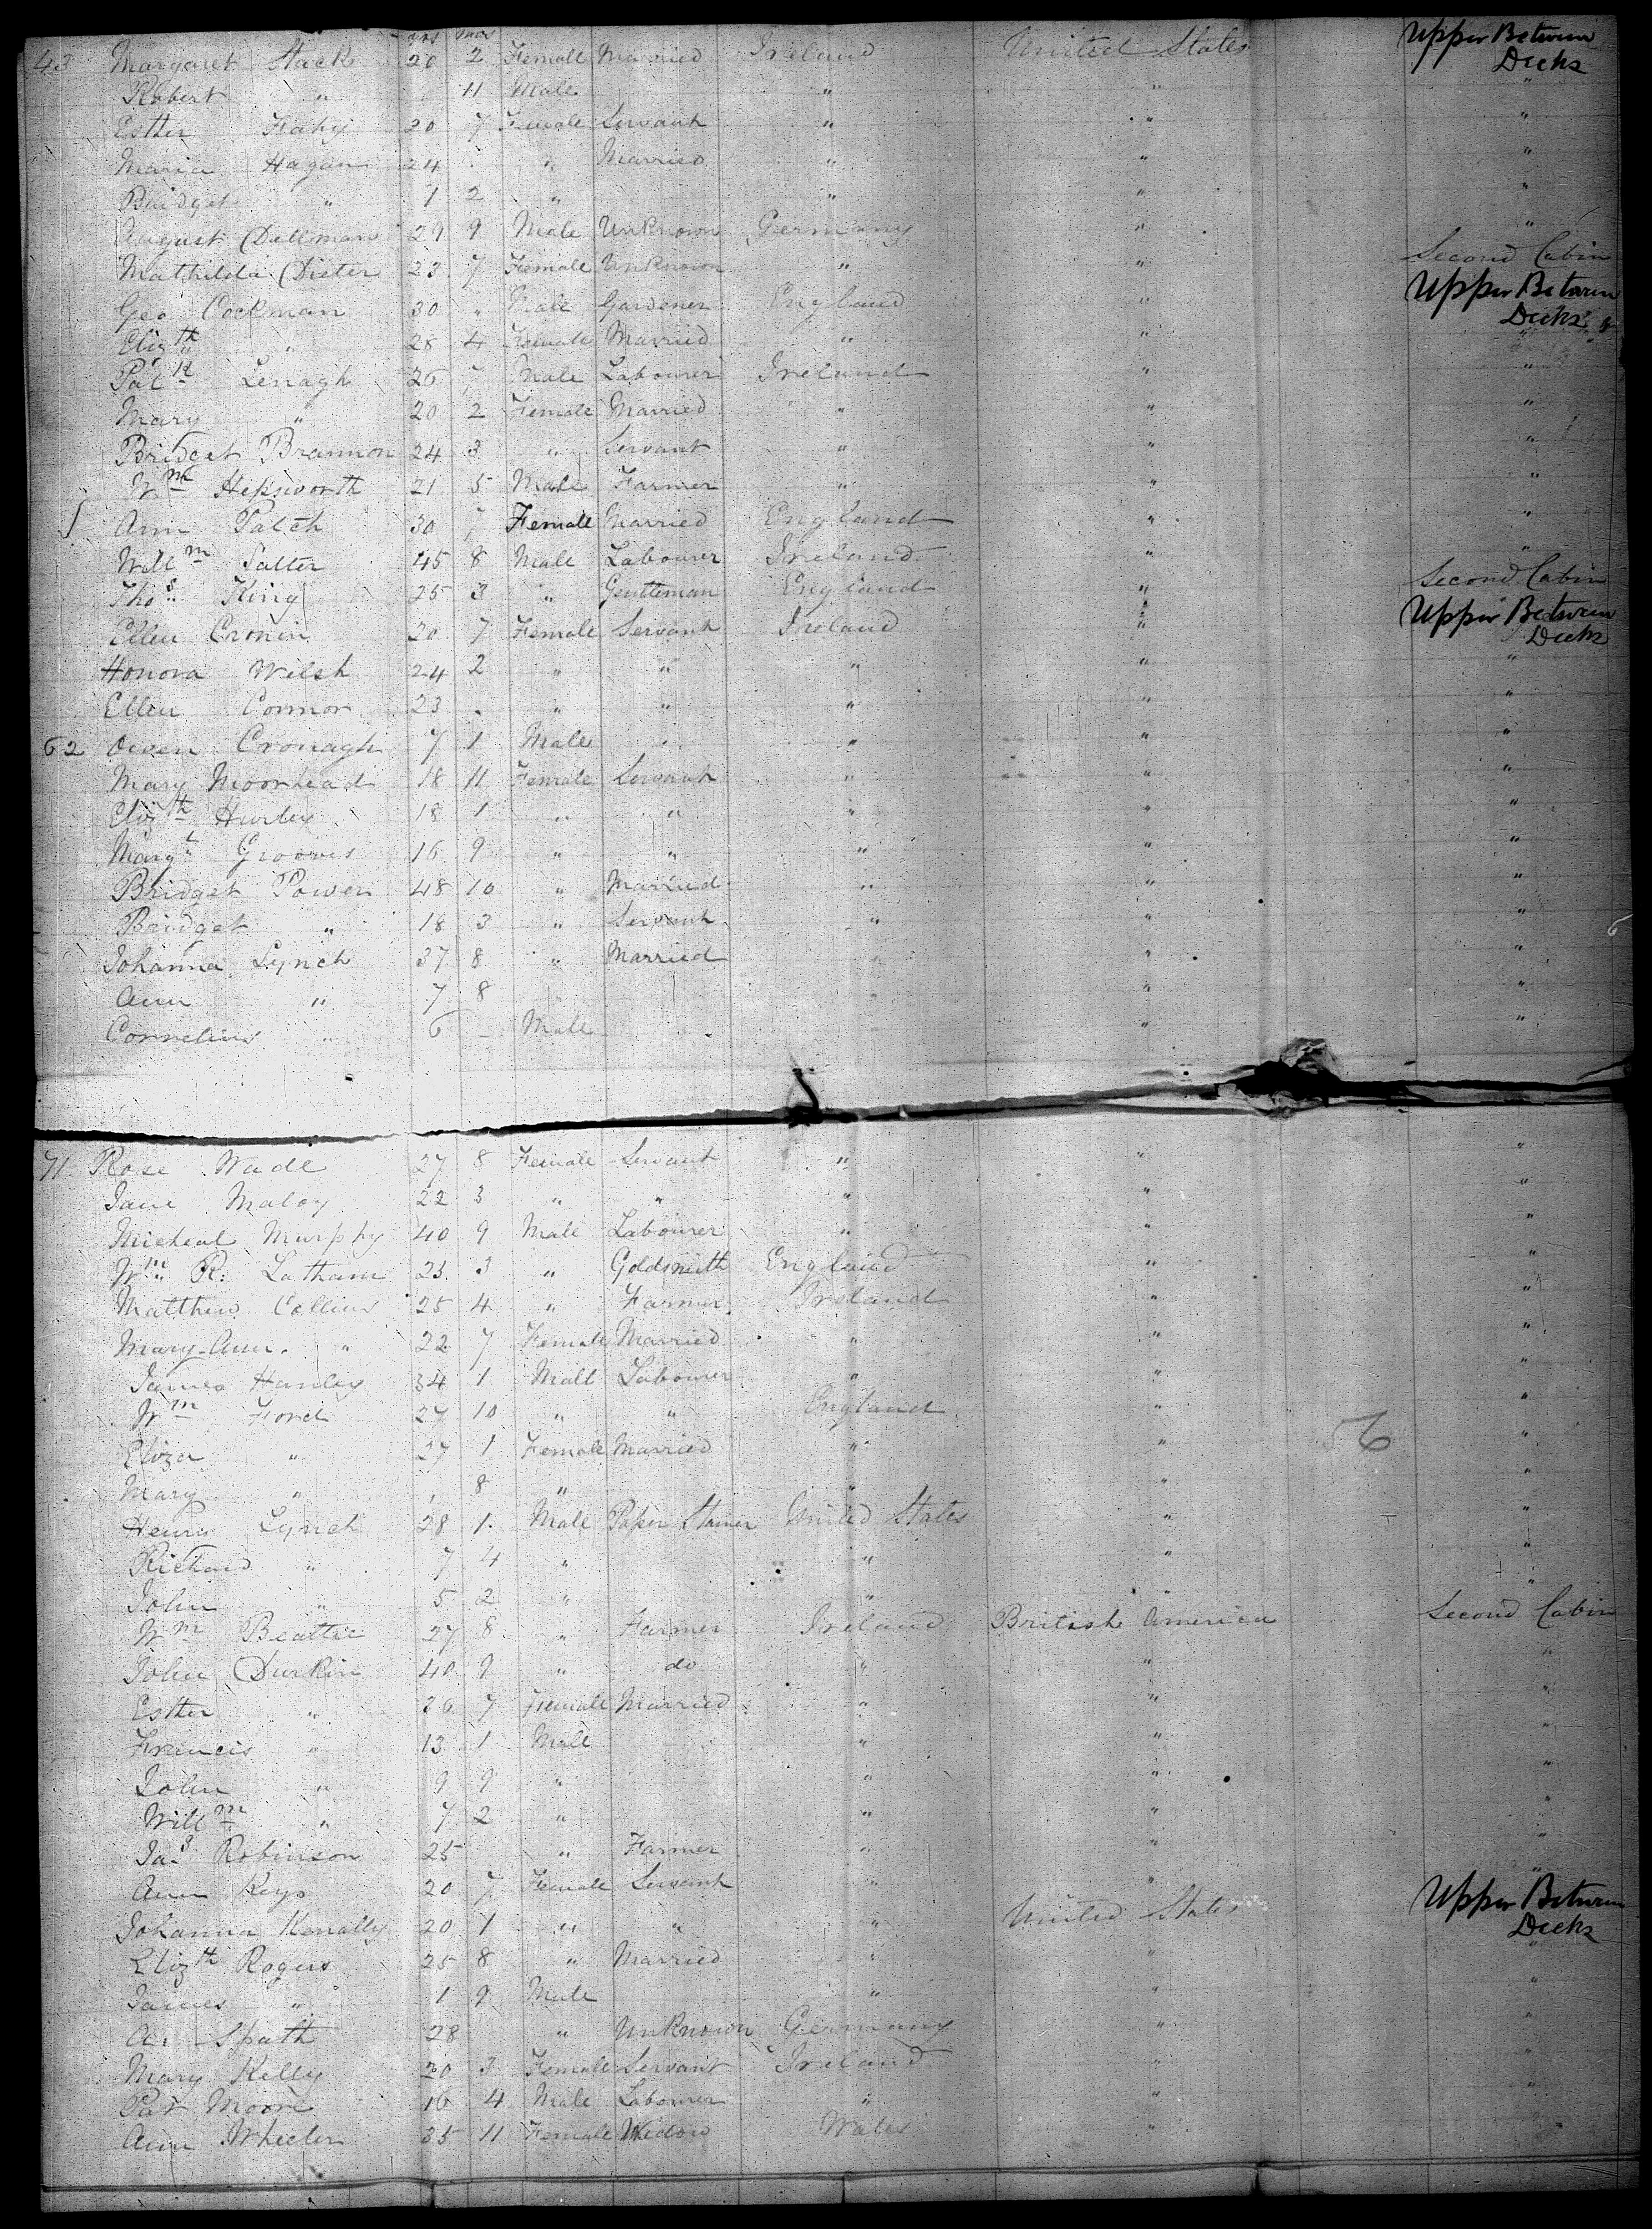 yrs mos
43 Margaret Stack 20 2 Female Married Ireland United States Upper Between Decks
Robert " 11 Male " " "
Esther Fahy 20 7 Female Servant " " "
Maria Hagan 24 . " Married " " "
Bridget " 1 2 " " " "
August Dallman 29 9 Male Unknown Germany " "
Mathilda Dieter 23 7 Female Unknown " " Second Cabin
Geo Cockman 30 " Male Gardener England " Upper Between Decks
Elizth " 28 4 Female Married " " "
Patk Lenagh 26 7 Male Labourer Ireland " "
Mary " 20 2 Female Married " " "
Bridget Brannon 24 3 " Servant " " "
Wm Hepsworth 21 5 Male Farmer " " "
Ann Patch 30 7 Female Married England " "
Willm Salter 45 8 Male Labourer Ireland " "
Thos King 25 3 " Gentleman England " Second Cabin
Ellen Cronin 20 7 Female Servant Ireland " Upper Between Decks
Honora Welsh 24 2 " " " " "
Ellen Connor 23 . " " " " "
62 Owen Cronagh 7 1 Male " " "
Mary Moorhead 18 11 Female Servant " " "
Elizth Hurley 18 1 " " " " "
Margt Grooves 16 9 " " " " "
Bridget Power 48 10 " Married " " "
Bridget " 18 3 " Servant " " "
Johanna Lynch 37 8 " Married " " "
Ann " 7 8 " " "
Cornelius " 6 - Male " "
71 Rose Wade 27 8 Female Servant " " "
Jane Maloy 22 3 " " " " "
Micheal Murphy 40 9 Male Labourer " " "
Wm R. Latham 23 3 " Goldsmith England " "
Matthew Collins 25 4 " Farmer Ireland " "
Mary-Ann " 22 7 Female Married " " "
James Hanley 34 1 Male Labourer " " "
Wm Ford 27 10 " " England " "
Eliza " 27 1 Female Married " " "
Mary " 8 " " " "
Henry Lynch 28 1 Male Paper Stainer United States " "
Richard " 7 4 " " " "
John " 5 2 " " " "
Wm Beattie 27 8 " Farmer Ireland British America Second Cabin
John Durkin 40 9 " do " " "
Esther " 36 7 Female Married " " "
Francis " 13 1 Male " " "
John " 9 9 " " " "
Willm " 7 2 " " " "
Jas Robinson 25 " Farmer " " "
Ann Keys 20 7 Female Servant " " "
Johanna Kenally 20 1 " " " United States Upper Between Decks
Elizth Rogers 25 8 " Married " " "
James " 1 9 Male " " "
Spath 28 " Unknown Germany " "
Mary Kelly 20 3 Female Servant Ireland " "
Pat Moore 16 4 Male Labourer " " "
Ann Wheeler 35 11 Female Widow Wales " "